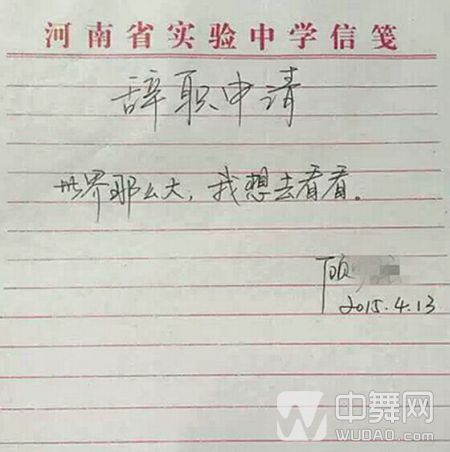 河南省实验中学信笺
辞职申请
世界那么大，我想去看看。
顾
2015.4.13
W 中舞网
WUDAO.com